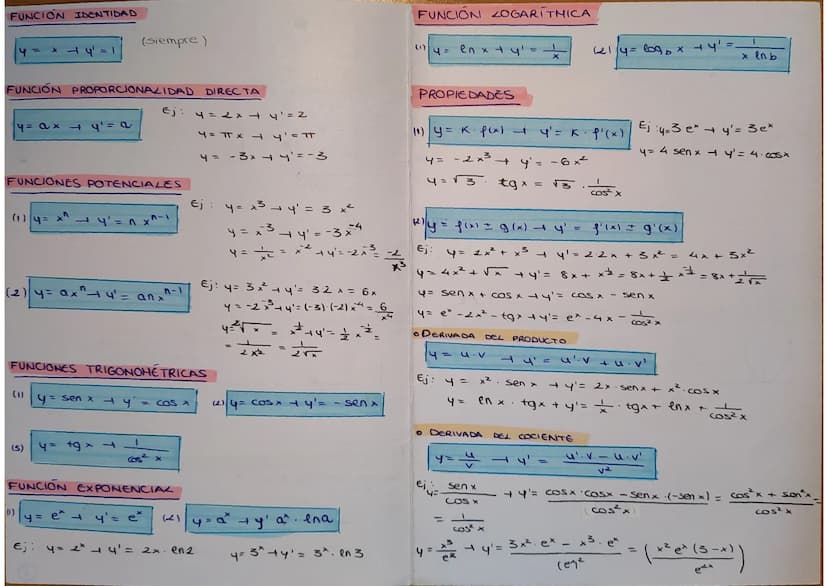 FUNCIÓN IDENTIDAD
y = x → y' = 1 (siempre)
FUNCIÓN PROPORCIONALIDAD DIRECTA
y = ax → y' = a
Ej: y = 2x → y' = 2
y = πx → y' = π
y = -3x → y' = -3
FUNCIONES POTENCIALES
(1) y = xⁿ → y' = n xⁿ⁻¹
Ej: y = x³ → y' = 3 x²
y = x⁻³ → y' = -3x⁻⁴
y = 1/x² = x⁻² → y' = -2x⁻³ = -2/x³
(2) y = axⁿ → y' = anxⁿ⁻¹
Ej: y = 3x² → y' = 3 2 x = 6x
y = -2x⁻³ → y' = (-3)·(-2)x⁻⁴ = 6/x⁴
y = ²√x = x^½ → y' = ½ x^-½ =
= 1/2x^½ = 1/2√x
FUNCIONES TRIGONOMÉTRICAS
(1) y = sen x → y' = cos x (2) y = cos x → y' = - sen x
(3) y = tg x → 1/cos² x
FUNCIÓN EXPONENCIAL
(1) y = eˣ → y' = eˣ (2) y = aˣ → y' aˣ · ln a
Ej: y = 2ˣ → y' = 2x · ln 2 y = 3ˣ → y' = 3ˣ · ln 3
FUNCIÓN LOGARÍTMICA
(1) y = ln x → y' = 1/x (2) y = log_b x → y' = 1/x ln b
PROPIEDADES
(1) y = K · f(x) → y' = K · f'(x)
Ej: y = 3 eˣ → y' = 3eˣ
y = 4 sen x → y' = 4 · cos x
y = -2x³ → y' = -6x²
y = √3 · tg x = √3 · 1/cos² x
(2) y = f(x) ± g(x) → y' = f'(x) ± g'(x)
Ej: y = 2x² + x³ → y' = 2 2x + 3x² = 4x + 3x²
y = 4x² + √x → y' = 8x + x^½ = 8x + ½ x^-½ = 8x + 1/2√x
y = sen x + cos x → y' = cos x - sen x
y = eˣ - 2x² - tg x → y' = eˣ - 4x - 1/cos² x
o DERIVADA DEL PRODUCTO
y = u · v → y' = u' · v + u · v'
Ej: y = x² · sen x → y' = 2x · sen x + x² · cos x
y = ln x · tg x → y' = 1/x · tg x + ln x · 1/cos² x
o DERIVADA DEL COCIENTE
y = u/v → y' = u' · v - u · v' / v²
Ej: y = sen x/cos x → y' = cos x · cos x - sen x · (-sen x) / (cos² x) = cos² x + sen² x / cos² x =
= 1/cos² x
y = x³/eˣ → y' = 3x² · eˣ - x³ · eˣ / (eˣ)² = (x² eˣ (3 - x) / e²ˣ)